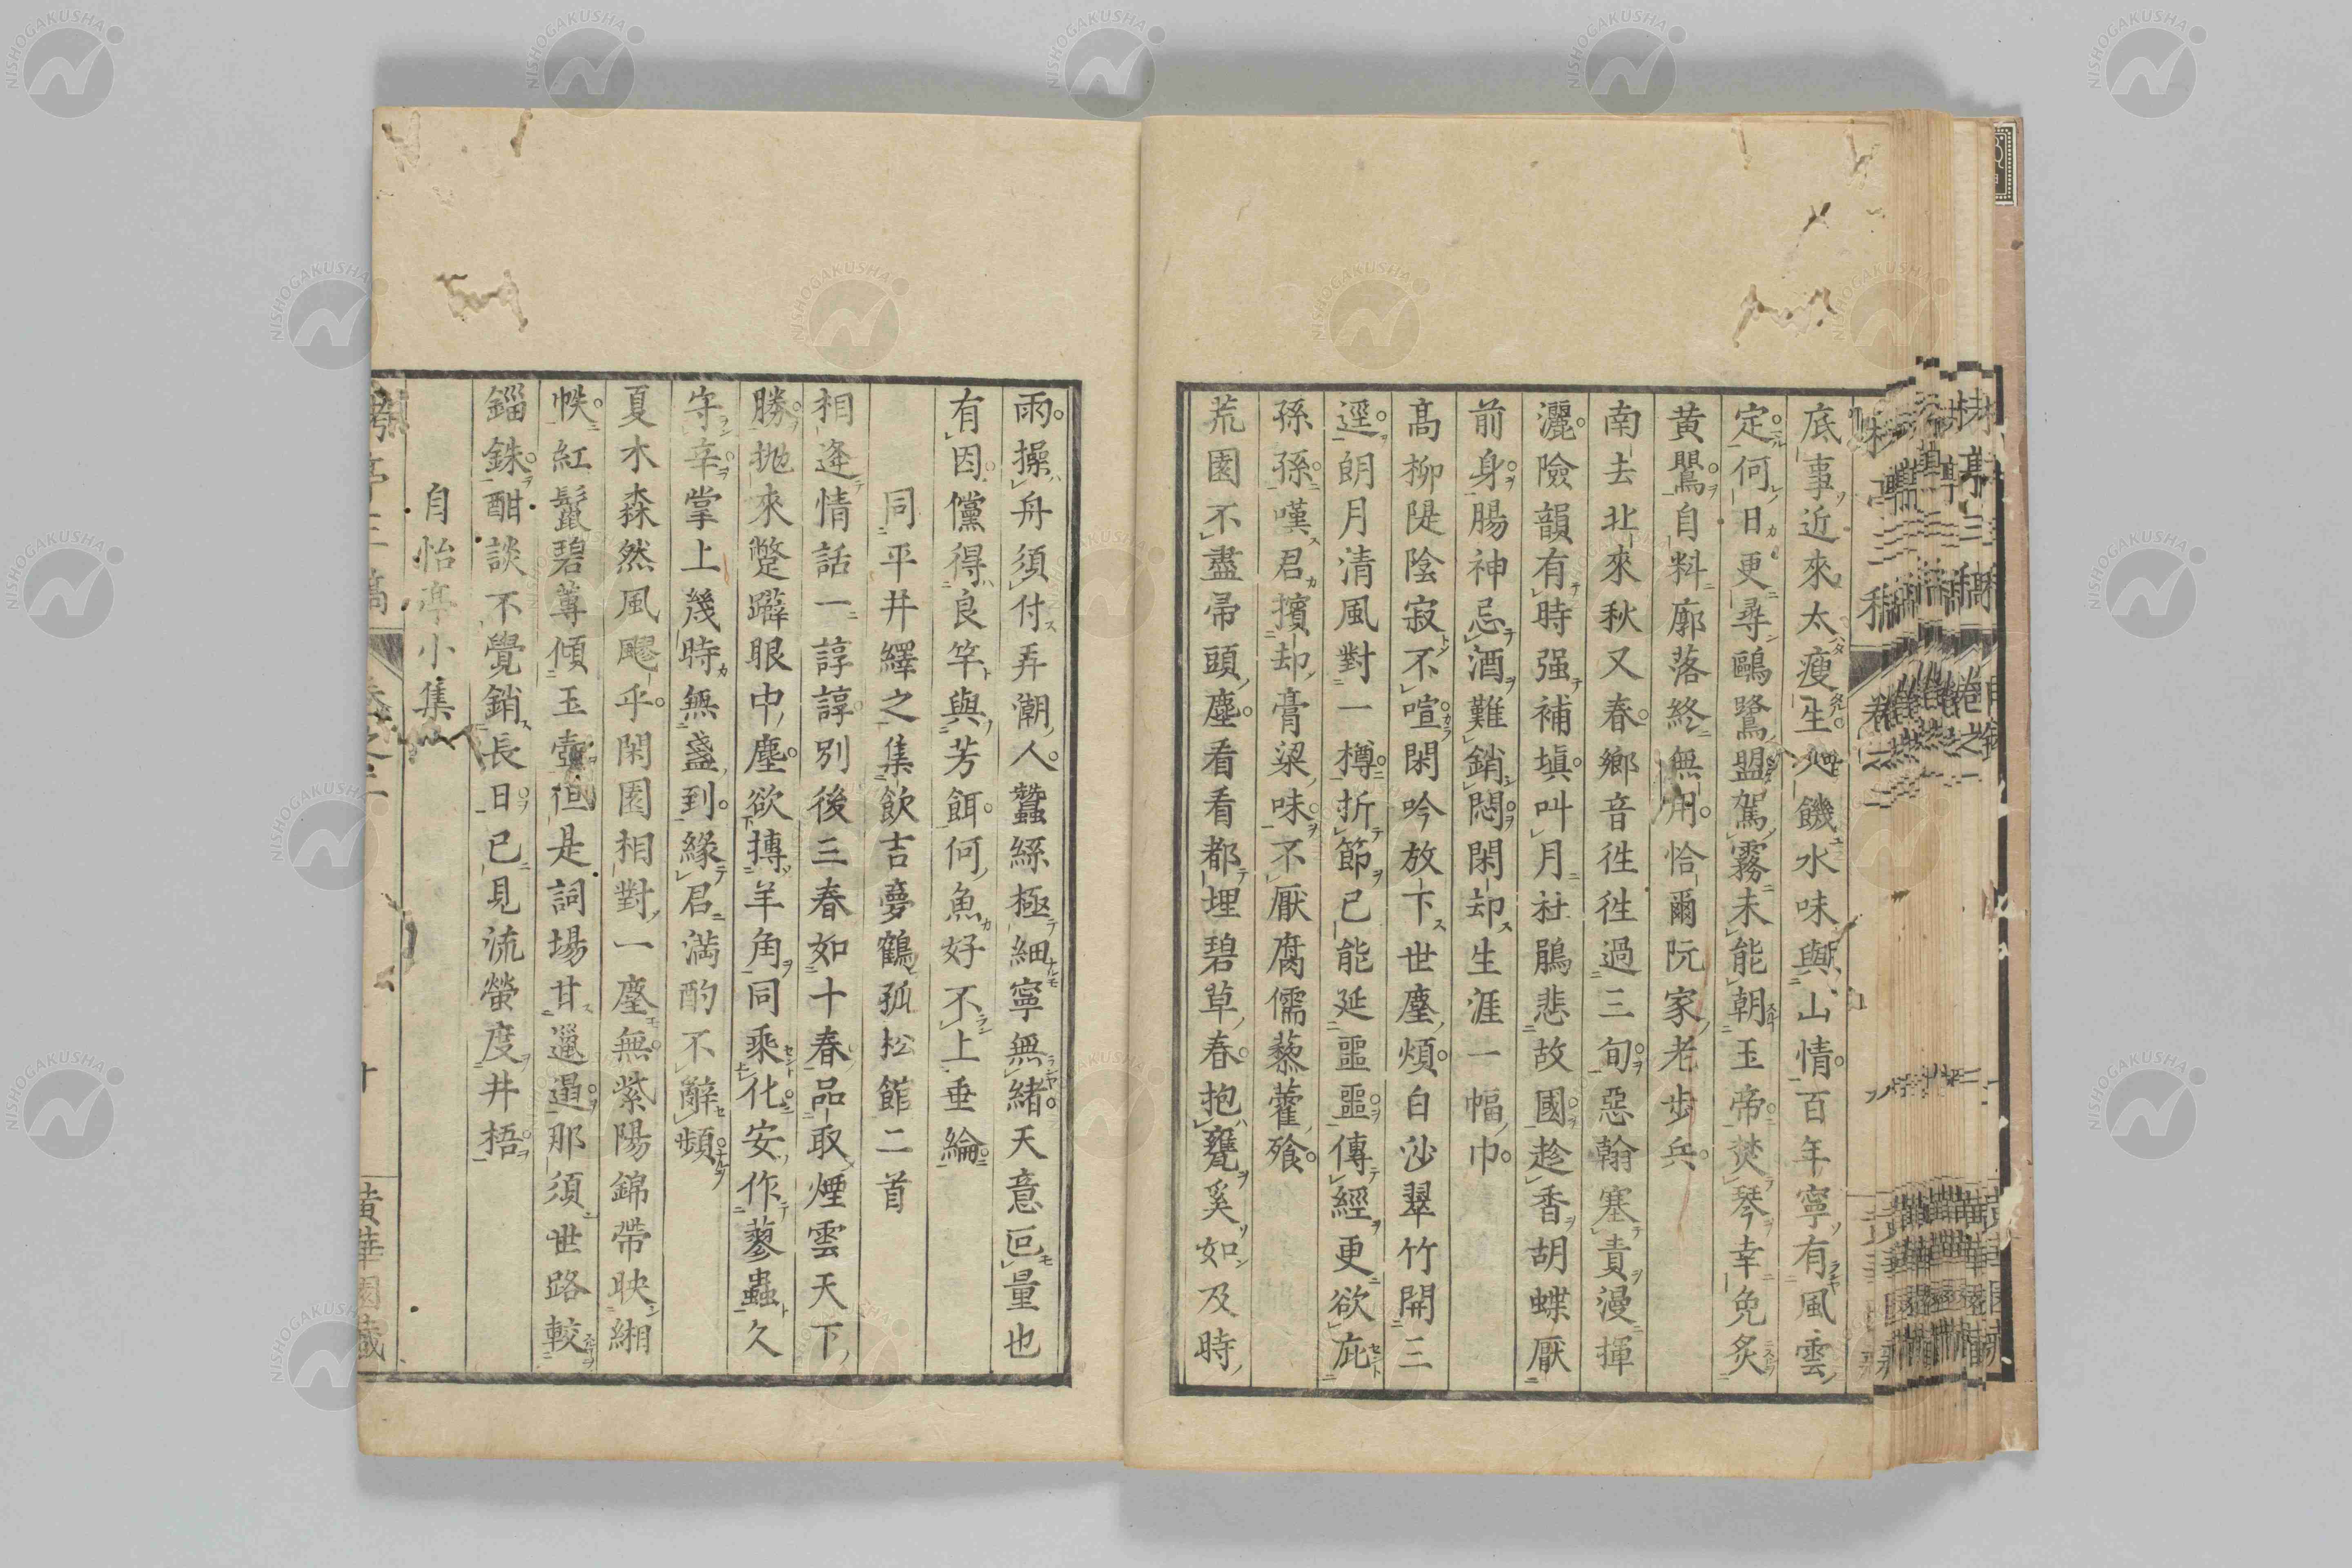 底事近來太瘦生飢饑水味與山情百年寧有風雲
定何日更尋鷗鷺盟駕霧未能朝玉帝焚琴幸免炙
黃鶯自料廓落終無用恰爾阮家老步兵
南去北來秋又春鄉音徃徃過三旬惡翰塞責漫揮
灑險韻有時强補塡叫月社鵑悲故國趁香胡蝶厭
前身腸神忌酒難銷悶閑却生涯一幅巾
髙柳隄陰寂不喧閑吟放卞世塵煩白沙翠竹開三
逕朗月清風對一樽折節已能延噩噩傳經更欲庇
孫孫嘆君擯却膏粱味不厭腐儒藜藿飱
荒園不盡帚頭塵看看都埋碧草春抱甕奚如及時
雨操舟須付弄潮人蠶絲極細寧無緒天意叵量也
有因儻得良竿與芳餌何魚好不上垂綸
同平井繹之集飲吉夢鶴孤松館二首
相逢情話一諄諄別後三春如十春品取煙雲天下
勝拋來蹩躠眼中塵欲摶羊角同乘化安作蓼蟲久
守辛掌上幾時無盞到緣君満酌不辭頻
夏木森然風颸乎閑園相對一塵無紫陽錦帶映緗
帙紅鬣碧蓴傾玉壺但是詞場甘邋遢那須世路較
錙銖酣談不覺銷長日已見流螢度井梧
自怡亭小集
黄華園藏
NISHOGAKUSHA